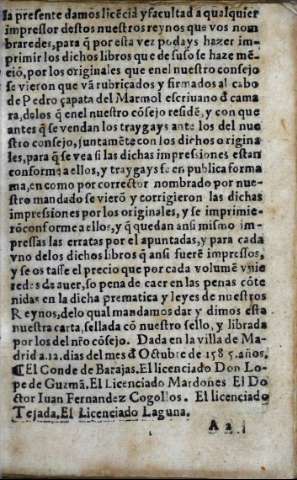 la presente damos licẽcia y facultad a qualquier
impressor destos nuestros reynos que vos nom
braredes, para q̃ por esta vez podays hazer im-
primir los dichos libros que de suso se haze mẽ-
ció, por los originales que enel nuestro consejo
se vieron que vã rubricados y firmados al cabo
de Pedro çapata del Marmol escriuano ď cama
ra, delos q̃ enel nuestro cõsejo residẽ, y con que
antes q̃ se vendan los traygays ante los del nue
stro consejo, juntamẽte con los dichos origina
les, para q̃ se vea si las dichas impressiones estan
conforme a ellos, y traygays fe en publica forma
ma, en como por corrector nombrado por nue-
stro mandado se vierõ y corrigieron las dichas
impressiones por los originales, y se imprimie-
rõ conforme a ellos, y q̃ quedan ansi mismo im-
pressas las erratas por el apuntadas, y para cada
vno delos dichos libros q̃ ansi fuerẽ impressos,
y se os tasse el precio que por cada volumẽ vuie
redes de auer, so pena de caer en las penas cõte
nidas en la dicha prematica y leyes de nuestros
Reynos, delo qual mandamos dar y dimos esta
nuestra carta, sellada cõ nuestro sello, y librada
por los del nr̃o cõsejo. Dada en la villa de Ma-
drid a .12. dias del mes ď Octubre de 1585. años,
¶El Conde de Barajas. El licenciado Don Lo-
pe de Guzmã. El Licenciado Mardones El Do
ctor Iuan Fernandez Cogollos. El licenciado
Tejada. El Licenciado Laguna.
A 2